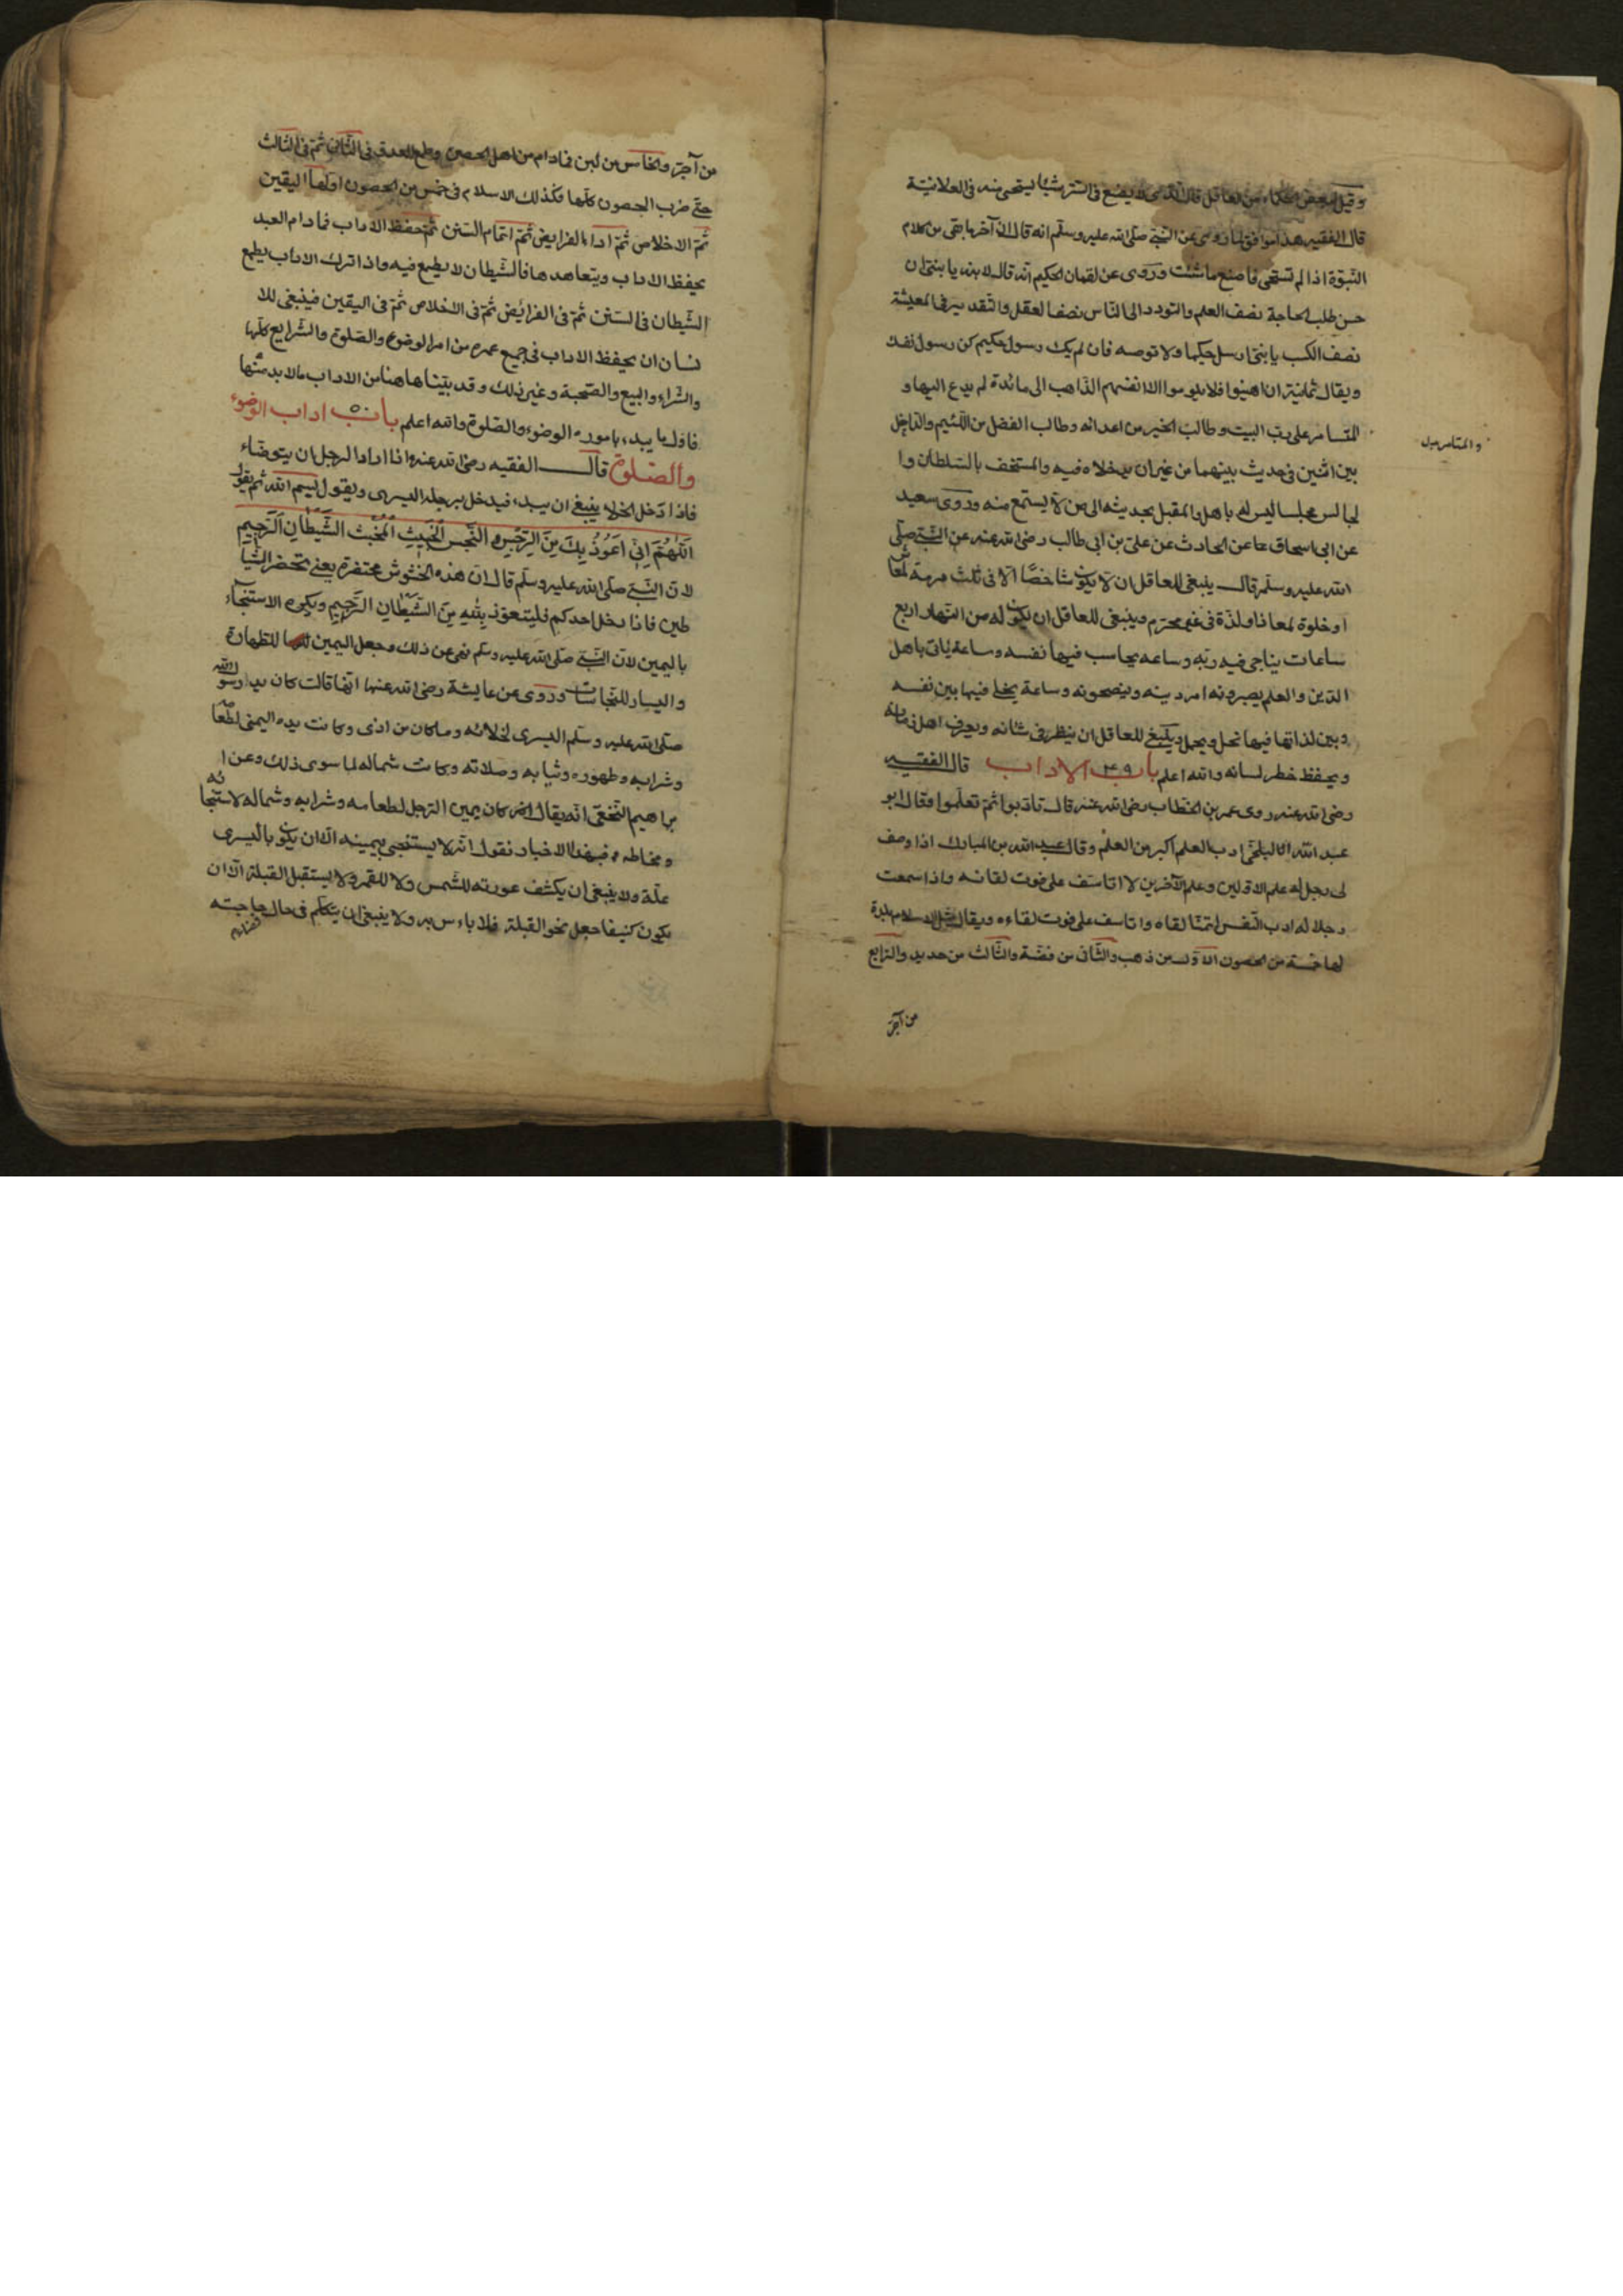 وقيل لبعض الحكماء من العاقل قال الذى لا يصنع فى الستر شيئا يستحى منه فى العلانية
قال الفقيه هذا موافق لما روى عن النبى صلى الله عليه وسلم انه قال ان آخر ما بقى من كلام
النبوة اذا لم تستحى فاصنع ما شئت وروى عن لقمان الحكيم انه قال لابنه يا بنى ان
حسن طلب الحاجة نصف العلم والتودد الى الناس نصف العقل والتقدير فى المعيشة
نصف الكسب يا بنى ارسل حكيما ولا توصه فان لم يك رسول حكيم كن رسول نفسك
ويقال ثمانية ان اهينوا فلا يلوموا الا انفسهم الذاهب الى مائدة لم يدع اليها و
المتامر على رب البيت وطالب الخير من اعدائه وطالب الفضل من اللئيم والداخل
والمتامر
بين اثنين فى حديث بينهما من غير ان يدخلاه فيه والمستخف بالسلطان وا
لجالس مجلسا ليس له باهل والمقبل بحديثه الى من لا يستمع منه وروى سعيد
عن ابى اسحاق عن الحارث عن على بن ابى طالب رضى الله عنه عن النبى صلى
الله عليه وسلم قال ينبغى للعاقل ان لا يكون شاخصا الا فى ثلث مرمة لمعاش
او خلوة لمعاد او لذة فى غير محرم وينبغى للعاقل ان يكون له من النهار اربع
ساعات يناجى فيه ربه وساعه يحاسب فيها نفسه وساعة ياتى باهل
الدين والعلم يبصرونه امر دينه وينصحونه وساعة يخلى فيها بين نفسه
وبين لذاتها فيما تحل ويجمل وينبغى للعاقل ان ينظر فى شانه ويعرف اهل زمانه
ويحفظ لسانه والله اعلم باب ٤٩ الاداب قال الفقيه
رضى الله عنه روى عمر بن الخطاب رضى الله عنه قال تادبوا ثم تعلموا وقال ابو
عبد الله البلخى ادب العلم اكبر من العلم وقال عبد الله بن المبارك اذا وصف
لى رجل له علم الاولين وعلم الآخرين لا اتاسف على فوت لقائه واذا سمعت
رجلا له ادب النفس اتمنا لقاه واتاسف على فوت لقاءه ويقال مثل الاسلام بلدة
لها خمسة من الحصون الاول من ذهب والثانى من فضة والثالث من حديد والرابع
من آجر
من آجر والخامس من لبن فما دام من اهل الحصن فى الثانى ثم فى الثالث
حتى خرب الحصون كلها فكذلك الاسلام فى خمس من الحصون اولها اليقين
ثم الاخلاص ثم اداء الفرايض ثم اتمام السنن ثم حفظ الاداب فما دام العبد
يحفظ الاداب ويتعاهدها فالشيطان لا يطمع فيه واذا ترك الاداب يطمع
الشيطان فى السنن ثم فى الفرائض ثم فى الاخلاص ثم فى اليقين فينبغى للا
نسان ان يحفظ الاداب فى جميع عمره من امر الوضوء والصلوة والشرايع كلها
والشراء والبيع والصحبة وغير ذلك وقد بينا هاهنا من الاداب مالا بد منها
فاول ما يبدء بامور الوضوء والصلوة والله اعلم باب ٥٠ اداب الوضوء
والصلوة قال الفقيه رضى الله عنه واذا اراد الرجل ان يتوضاء
فاذا دخل الخلاء ينبغى ان يبدء فيدخل برجله اليسرى ويقول بسم الله ثم يقول
اَللّهُمَّ اِنِّى اَعُوذُ بِكَ مِنَ الرِّجْسِ النَّجِسِ الْخَبِيثِ الْمُخْبِثِ الشَّيْطَانِ الرَّجِيمِ
لان النبى صلى الله عليه وسلم قال ان هذه الحشوش محتضرة يعنى تحضر الشيا
طين فاذا دخل احدكم فليتعوذ بِاللهِ مِنَ الشَّيْطَانِ الرَّجِيمِ ويكره الاستنجاء
باليمين لان النبى صلى الله عليه وسلم نهى عن ذلك وجعل اليمين للطهارة
واليسار للنجاسات وروى عن عايشة رضى الله عنها انها قالت كان يد رسول الله
صلى الله عليه وسلم اليسرى لخلائه وما كان من اذى وكانت يده اليمنى لطعامه
وشرابه وطهوره وثيابه وصلاته وكانت شماله لما سوى ذلك وعن ا
براهيم النخعى انه يقال كان يمين الرجل لطعامه وشرابه وشماله لاستنجائه
ومخاطه فبهذا الاخبار نقول انه لا يستنجى بيمينه الا ان يكون باليسرى
علة ولا ينبغى ان يكشف عورته للشمس ولا للقمر ولا يستقبل القبلة الا ان
يكون كنيفا جعل نحو القبلة فلا باءس به ولا ينبغى ان يتكلم فى حال حاجته